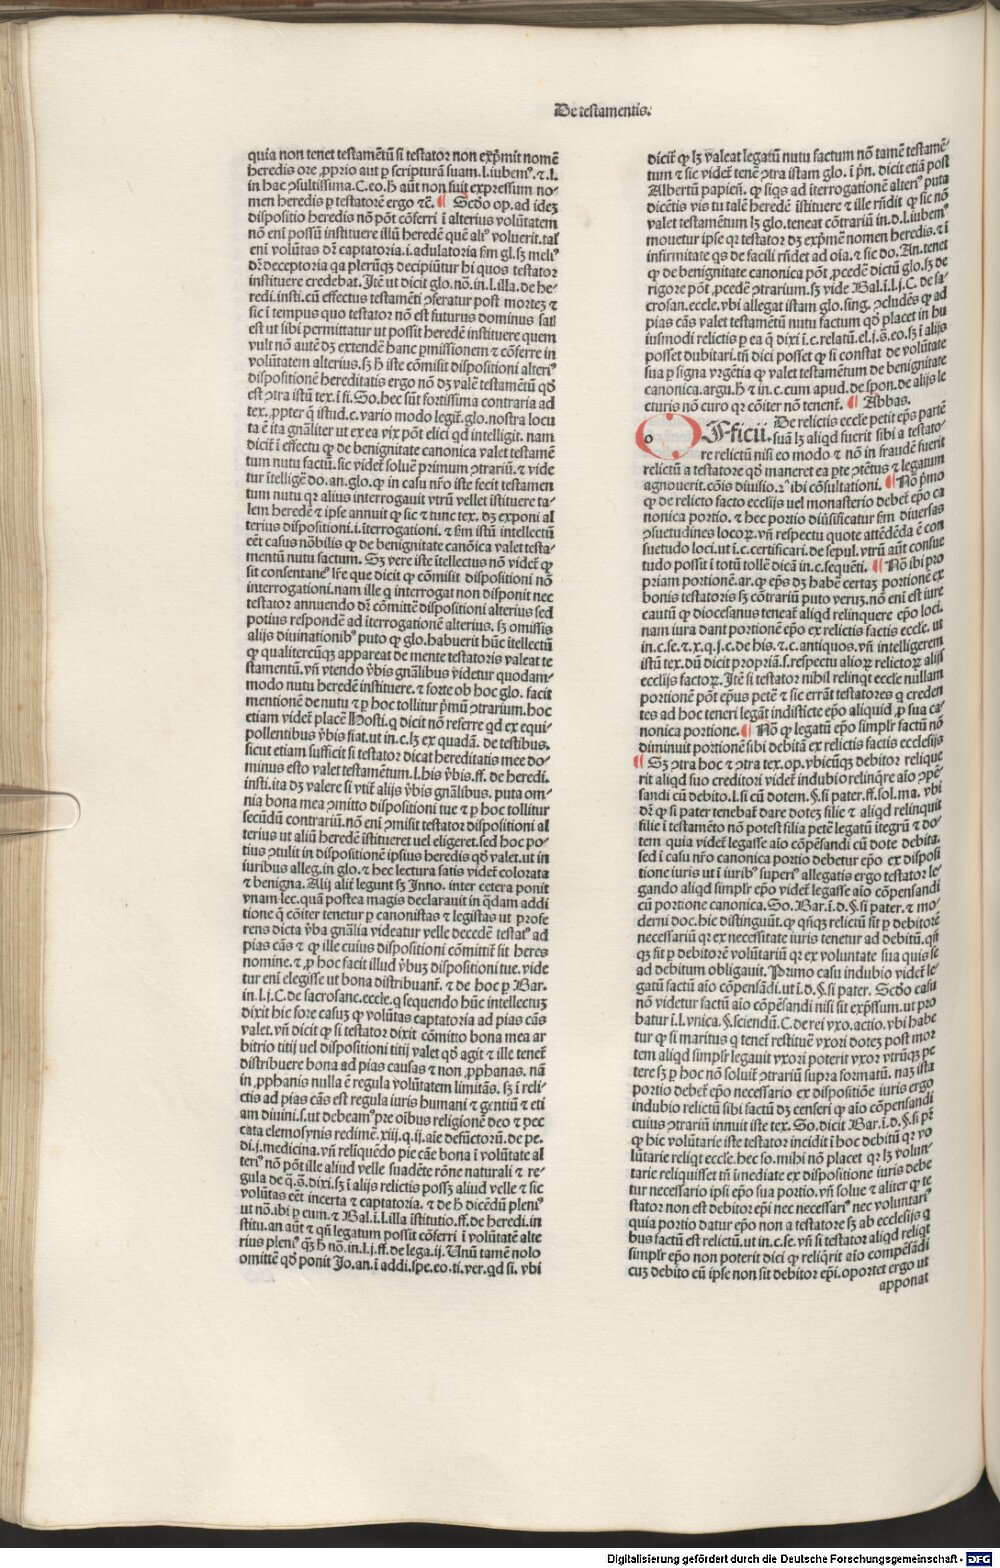 De testamentis.
quia non tenet testamẽtũ si testator non exp̃mit nomẽ
heredis ore ꝓprio aut p scripturã suam.l.iubemꝰ.⁊.l.
in hac ↄsultissima.C.eo.h̃ aũt non fuit expressum no-
men heredis p testatorẽ ergo ⁊c̃. ¶ Scd̃o op.ad idez
dispositio heredis nõ põt cõferri ĩ alterius volũtatem
nõ enĩ possũ instituere illũ heredẽ quẽ aliꝰ voluerit.tal̃
enĩ volũtas dr̃ captatoria.i.adulatoria fm gl.sꝫ meliꝰ
dr̃ deceptoria qa plerũqꝫ decipiũtur hi quos testator
instituere credebat. Itẽ ut dicit glo.nõ.in.l.illa.de he-
redi.insti.cũ effectus testamẽti ↄferatur post mortez ⁊
sic ĩ tempus quo testator nõ est futurus dominus sat̃
est ut sibi permittatur ut possit heredẽ instituere quem
vult nõ autẽ dꝫ extendẽ hanc p̱missionem ⁊ cõferre in
volũtatem alterius.sꝫ h̃ iste cõmisit dispositioni alteriꝰ
dispositionẽ hereditatis ergo nõ dꝫ valẽ testamẽtũ qd̃
est ↄtra istũ tex.ĩ fi. So.hec sũt fortissima contraria ad
tex.ꝓpter q̃ istud.c.vario modo legit̃.glo.nostra locu
ta ẽ ita gñaliter ut ex ea vix põt elici qd intelligit. nam
dicit̃ ĩ effectu qꝙ de benignitate canonica valet testamẽ
tum nutu factũ. sic videt̃ soluẽ primum ↄtrariũ. ⁊ vide
tur ĩtelligẽ do.an.glo.ꝙ in casu nr̃o iste fecit testamen
tum nutu qꝛ alius interrogauit vtrũ vellet ĩstituere ta-
lem heredẽ ⁊ ipse annuit ꝙ sic ⁊ tunc tex.dꝫ exponi al
terius dispositioni.i.ĩterrogationi.⁊ fm istũ intellectũ
eẽt casus nõbilis ꝙ de benignitate canõica valet testa-
mentũ nutu factum. Sꝫ vere iste ĩtellectus nõ videt̃ ꝙ
sit consentaneꝰ lr̃e que dicit ꝙ cõmisit dispositioni nõ
interrogationi.nam ille q̃ interrogat non disponit nec
testator annuendo dr̃ cõmittẽ dispositioni alterius sed
potius respondẽ ad ĩterrogationẽ alterius. sꝫ omissis
alijs diuinationibꝰ puto ꝙ glo.habuerit hũc ĩtellectũ
ꝙ qualitercũqꝫ appareat de mente testatoris valeat te
stamentũ.vñ vtendo v̾bis gñalibus videtur quodam-
modo nutu heredẽ instituere.⁊ forte ob hoc glo. facit
mentionẽ de nutu ⁊ p hoc tollitur p̃mũ ↄtrarium.hoc
etiam videt̃ placẽ Hosti.q̃ dicit nõ referre qd ex equi-
pollentibus v̾bis fiat.ut in.c.lꝫ ex quadã. de testibus.
sicut etiam sufficit si testator dicat hereditatis mee do-
minus esto valet testamẽtum.l.his v̾bis.ff.de heredi.
insti.ita dꝫ valere si vtit̃ alijs v̾bis gñalibus. puta om-
nia bona mea ↄmitto dispositioni tue ⁊ p hoc tollitur
secũdũ contrariũ.nõ enĩ ↄmisit testator dispositioni al
terius ut aliũ heredẽ ĩstitueret vel eligeret.sed hoc po-
tius ↄtulit in dispositionẽ ipsius heredis qd̃ valet.ut in
iuribus alleg.in glo.⁊ hec lectura satis videt̃ colorata
⁊ benigna. Alij alit̃ legunt sꝫ Inno. inter cetera ponit
vnam lec.quã postea magis declarauit in q̃dam addi
tione q̃ cõiter tenetur p canonistas ⁊ legistas ut profe
rens dicta v̾ba gñalia videatur velle decedẽ testatꝰ ad
pias cãs ⁊ ꝙ ille cuius dispositioni cõmittit̃ sit heres
nomine.⁊ ꝓ hoc facit illud v̾buꝫ dispositioni tue. vide
tur enĩ elegisse ut bona distribuant̃. ⁊ de hoc p Bar.
in.l.j.C.de sacrosanc.eccle.q̃ sequendo hũc intellectuꝫ
dixit hic fore casuꝫ ꝙ volũtas captatoria ad pias cãs
valet.vñ dicit ꝙ si testator dixit cõmitto bona mea ar
bitrio titij vel dispositioni titij valet qd̃ agit ⁊ ille tenet̃
distribuere bona ad pias causas ⁊ non ꝓphanas. nã
in ꝓphanis nulla ẽ regula volũtatem limitãs. sꝫ ĩ reli-
ctis ad pias cãs est regula iuris humani ⁊ gentiũ ⁊ eti
am diuini.s.ut debeamꝰ pre oĩbus religionẽ deo ⁊ pec
cata elemosynis redimẽ.xiij.q.ij.aĩe defũctorũ.de pe.
di.j.medicina.vñ reliquẽdo pie cãe bona ĩ volũtate al
teriꝰ nõ põt ille aliud velle suadẽte rõne naturali ⁊ re-
gula de q̃.s̃.dixi.sꝫ ĩ alijs relictis possꝫ aliud velle ⁊ sic
volũtas eẽt incerta ⁊ captatoria. ⁊ de h̃ dicẽdũ pleniꝰ
ut nõ.ibi p eum.⁊ Bal.ĩ.l.illa ĩstitutio.ff.de heredi.in
stitu.an aũt ⁊ qñ legatum possit cõferri ĩ volũtatẽ alte
rius pleniꝰ q̃ꝫ h̃ nõ.in.l.j.ff.de lega.ij. Unũ tamẽ nolo
omittẽ qd̃ ponit Jo.an.ĩ addi.spe.eo.ti.ver.qd si. vbi
dicit̃ ꝙ lꝫ valeat legatũ nutu factum nõ tamẽ testamẽ-
tum ⁊ sic videt̃ tenẽ ↄtra istam glo. ĩ pñ. dicit etiã post
Albertũ papieñ. ꝙ siqs ad ĩterrogationẽ alteriꝰ puta
dicẽtis vis tu talẽ heredẽ ĩstituere ⁊ ille rñdit ꝙ sic nõ
valet testamẽtum lꝫ glo.teneat cõtrariũ in.d.l.iubemꝰ
mouetur ipse qꝛ testator dꝫ exp̃mẽ nomen heredis.⁊ ĩ
infirmitate qs de facili rñdet ad oĩa.⁊ sic do.An.tenet
ꝙ de benignitate canonica põt ꝓcedẽ dictũ glo.sꝫ de
rigore põt ꝓcedẽ ↄtrarium.sꝫ vide Bal.ĩ.l.j.C.de sa-
crosan.eccle.vbi allegat istam glo.sing. ↄcludẽs ꝙ ad
pias cãs valet testamẽtũ nutu factum qd̃ placet in hu
iusmodi relictis p ea q̃ dixi ĩ.c.relatũ.el.j.s̃.eo.sꝫ ĩ alijs
posset dubitari.tñ dici posset ꝙ si constat de volũtate
sua p signa vrgẽtia ꝙ valet testamẽtum de benignitate
canonica.argu.h̃ ⁊ in.c.cum apud.de spon.de alijs le
cturis nõ curo qꝛ cõiter nõ tenent̃. ¶ Abbas.
o Fficii. De relictis eccle petit ep̃s partẽ
suã lꝫ aliqd fuerit sibi a testato-
re relictũ nisi eo modo ⁊ nõ in fraudẽ fuerit
relictũ a testatore qd̃ maneret ea pte ↄtẽtus ⁊ legatum
agnouerit.cõis diuisio.⁊ ibi cõsultationi. ¶ Nõ p̃mo
ꝙ de relicto facto ecclijs uel monasterio debet̃ ep̃o ca
nonica portio. ⁊ hec portio diũsificatur fm diuersas
ↄsuetudines locoꝝ.vñ respectu quote attẽdẽda ẽ con
suetudo loci.ut ĩ.c.certificari.de sepul.vtrũ aũt consue
tudo possit ĩ totũ tollẽ dicã in.c.sequẽti. ¶ Nõ ibi pro
priam portionẽ.ar.ꝙ ep̃s dꝫ habẽ certaꝫ portionẽ ex
bonis testatoris sꝫ cõtrariũ puto verum.nõ enĩ est iure
cautũ ꝙ diocesanus teneat̃ aliqd relinquere ep̃o loci.
nam iura dant portionẽ ep̃o ex relictis factis eccle. ut
in.c.se.⁊.x.q.j.c.de his.⁊.c.antiquos.vñ intelligerem
istũ tex.dũ dicit propriã.s.respectu alioꝝ relictoꝝ alijs
ecclijs factoꝝ. Itẽ si testator nihil relinqt eccle nullam
portionẽ põt ep̃us petẽ ⁊ sic errãt testatores q̃ creden
tes ad hoc teneri legãt indisticte ep̃o aliquid ꝓ sua ca-
nonica portione. ¶ Nõ ꝙ legatũ ep̃o simplr̃ factũ nõ
diminuit portionẽ sibi debitã ex relictis factis ecclesijs
¶ Sꝫ ↄtra hoc ⁊ ↄtra tex.op.vbicũqꝫ debitor relique
rit aliqd suo creditori videt̃ indubio relinqre aĩo ↄpẽ-
sandi cũ debito.l.si cũ dotem.§.si pater.ff.sol.ma. vbi
dr̃ ꝙ si pater tenebat̃ dare dotez filie ⁊ aliqd relinquit
filie ĩ testamẽto nõ potest filia petẽ legatũ itegrũ ⁊ do-
tem quia videt̃ legasse aĩo cõpẽsandi cũ dote debita.
sed ĩ casu nr̃o canonica portio debetur ep̃o ex disposi
tione iuris ut ĩ iuribꝰ superiꝰ allegatis ergo testator le-
gando aliqd simplr̃ ep̃o videt̃ legasse aĩo cõpensandi
cũ portione canonica. So. Bar.ĩ.d.§.si pater.⁊ mo-
derni doc.hic distinguũt.ꝙ qñqꝫ relictũ sit p debitorẽ
necessariũ qꝛ ex necessitate iuris tenetur ad debitũ.qñ
qꝫ sit p debitorẽ volũtariũ qꝛ ex voluntate sua quis se
ad debitum obligauit. Primo casu indubio videt̃ le-
gatũ factũ aĩo cõpẽsãdi.ut ĩ.d.§.si pater. Scd̃o casu
nõ videtur factũ aĩo cõpẽsandi nisi sit exp̃ssum.ut pro
batur ĩ.l.vnica.§.sciendũ.C.de rei vxo.actio.vbi habe
tur ꝙ si maritus q̃ tenet̃ restituẽ vxori dotez post mor
tem aliqd simplr̃ legauit vxori poterit vxor vtrũqꝫ pe
tere sꝫ p hoc nõ soluit̃ ↄtrariũ supra formatũ. naꝫ ista
portio debet̃ ep̃o necessario ex dispositiõe iuris ergo
indubio relictũ sibi factũ dꝫ censeri ꝙ aĩo cõpẽsandi
cuius ↄtrariũ innuit iste tex. So.dicit Bar.ĩ.d.§.si pr̃
ꝙ hic volũtarie iste testator incidit ĩ hoc debitũ qꝛ vo
lũtarie reliqt eccle.hec so.mihi nõ placet qꝛ lꝫ volun-
tarie reliquisset tñ ĩmediate ex dispositione iuris debe
tur necessario ipsi ep̃o sua portio. vñ solue ⁊ aliter ꝙ te
stator non est debitor ep̃i nec necessariꝰ nec voluntariꝰ
quia portio datur ep̃o non a testatore sꝫ ab ecclesijs q̃
bus factũ est relictũ.ut in.c.se.vñ si testator aliqd reliqt
simplr̃ ep̃o non poterit dici ꝙ reliq̃rit aĩo compẽsãdi
cuꝫ debito cũ ipse non sit debitor ep̃i.oportet ergo ut
apponat
Digitalisierung gefördert durch die Deutsche Forschungsgemeinschaft - DFG